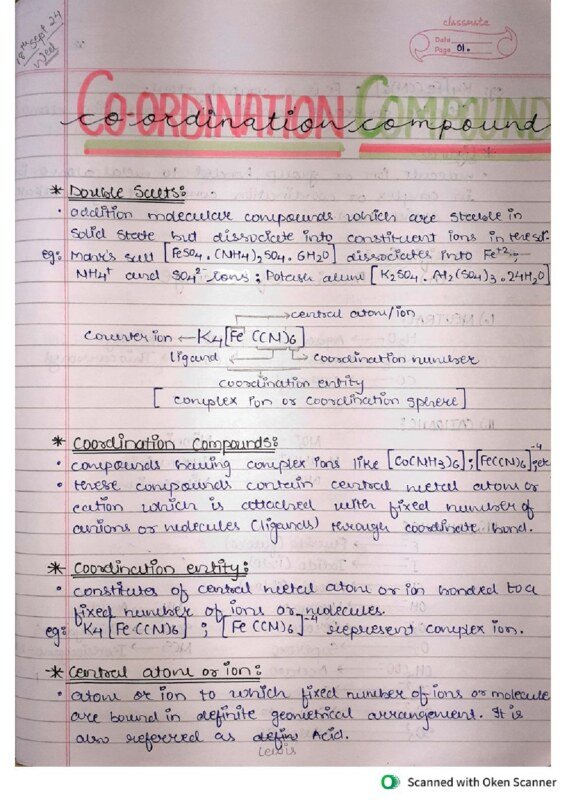 18th Sept 24
Wed
classmate
Date
Page 01.
CO-ORDINATION COMPOUND
co-ordination compound
* Double Salts:
• addition moleculear compounds which are stable in
solid state but dissociate into constituent ions in the sol-
eg: Mohr's salt [FeSO4 . (NH4)2SO4 . 6H2O] dissociates into Fe+2,
NH4+ and SO4 2- ions ; Potash alum [K2SO4 . Al2(SO4)3 . 24H2O]
central atom/ion
counter ion ← K4[Fe(CN)6]
ligand ← → coordination number
coordination entity
[complex ion or coordination sphere]
* Coordination Compounds:
• compounds having complex ions like [Co(NH3)6] ; [Fe(CN)6]-4 ; etc
• these compounds contain central metal atom or
cation which is attached with fixed number of
anions or molecules (ligands) through coordinate bond.
* Coordination entity:
• constitutes of central metal atom or ion bonded to a
fixed number of ions or molecules.
eg: K4[Fe(CN)6] ; [Fe(CN)6]-4 represent complex ion.
* Central atom or ion:
• atom or ion to which fixed number of ions or molecule
are bound in definite geometrical arrangement. It is
also referred as Acid.
Lewis
Scanned with Oken Scanner